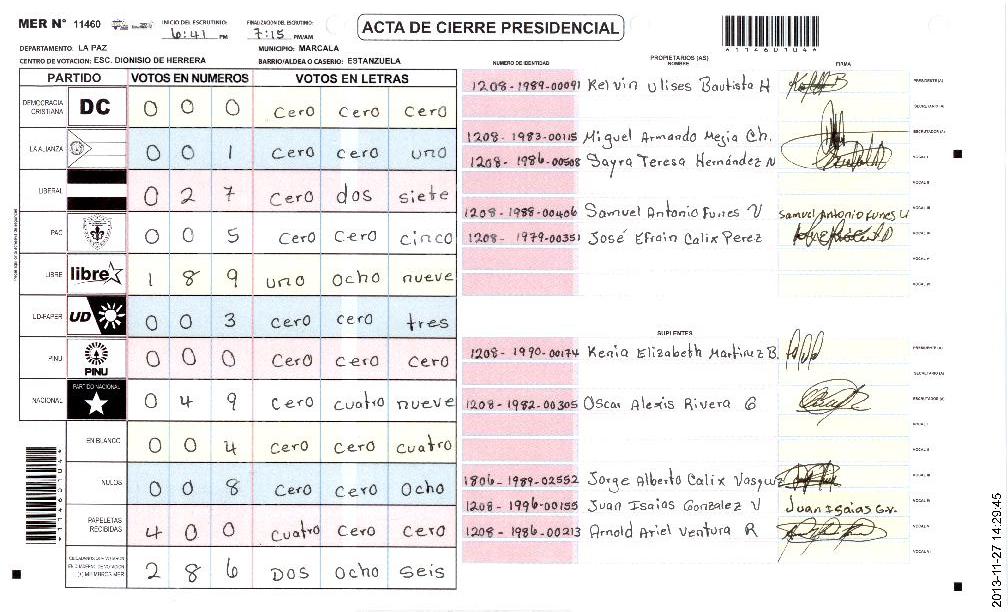 MER N° 11460
INICIO DEL ESCRUTINIO: 6:41 PM
FINALIZACION DEL ESCRUTINIO: 7:15 PM/AM
ACTA DE CIERRE PRESIDENCIAL
114601046
DEPARTAMENTO: LA PAZ
MUNICIPIO: MARCALA
CENTRO DE VOTACION: ESC. DIONISIO DE HERRERA
BARRIO/ALDEA O CASERIO: ESTANZUELA
PARTIDO VOTOS EN NUMEROS VOTOS EN LETRAS
DEMOCRACIA CRISTIANA DC 0 0 0 cero cero cero
LA ALIANZA 0 0 1 cero cero uno
LIBERAL 0 2 7 cero dos siete
PAC 0 0 5 cero cero cinco
LIBRE libre 1 8 9 uno ocho nueve
UD-FAPER UD 0 0 3 cero cero tres
PINU PINU 0 0 0 cero cero cero
NACIONAL PARTIDO NACIONAL 0 4 9 cero cuatro nueve
EN BLANCO 0 0 4 cero cero cuatro
NULOS 0 0 8 cero cero ocho
PAPELETAS RECIBIDAS 4 0 0 cuatro cero cero
2 8 6 DOS ocho seis
NUMERO DE IDENTIDAD
PROPIETARIOS (AS)
NOMBRE
FIRMA
1208-1989-00091 Kelvin Ulises Bautista H PRESIDENTE(A)
SECRETARIO(A)
1208-1983-00115 Miguel Armando Mejia Ch. ESCRUTADOR(A)
1208-1986-00508 Sayra Teresa Hernández N VOCAL I
VOCAL II
1208-1988-00406 Samuel Antonio Funes V Samuel Antonio Funes V VOCAL III
1208-1979-00351 José Efrain Calix Perez VOCAL IV
VOCAL V
VOCAL VI
SUPLENTES
1208-1990-00174 Kenia Elizabeth Martinez B. PRESIDENTE(A)
SECRETARIO(A)
1208-1982-00305 Oscar Alexis Rivera G ESCRUTADOR(A)
VOCAL I
VOCAL II
1806-1989-02552 Jorge Alberto Calix Vasquez VOCAL III
1208-1996-00155 Juan Isaias Gonzalez V Juan Isaias G.v. VOCAL IV
1208-1986-00213 Arnold Ariel Ventura R VOCAL V
VOCAL VI
2013-11-27 14:29:45